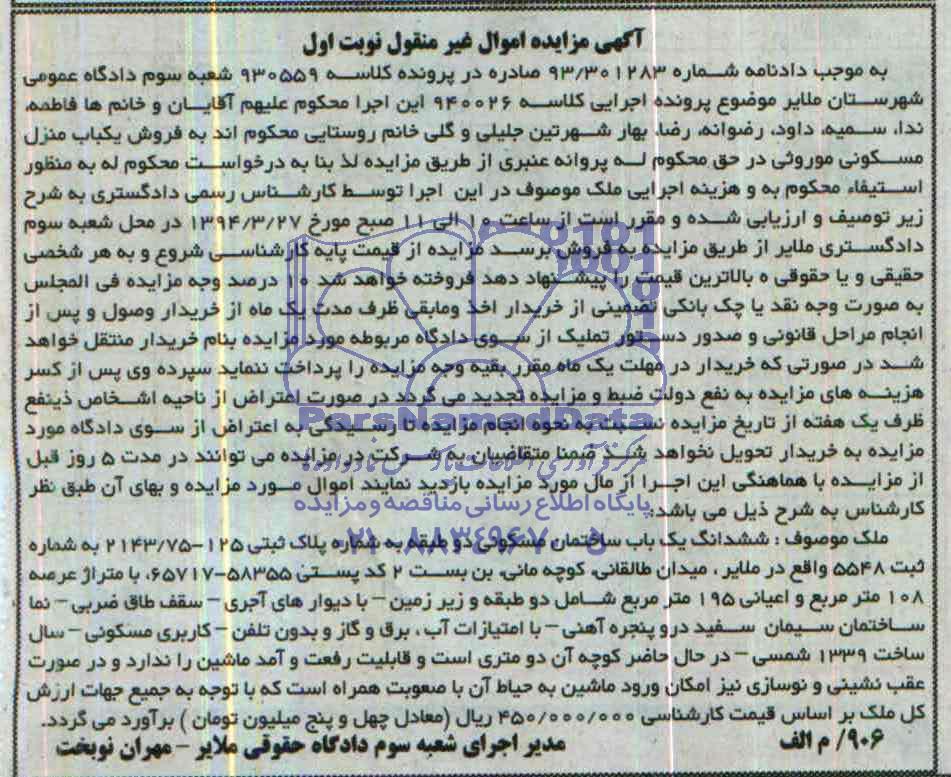 آگهی مزایده اموال غیر منقول نوبت اول
به موجب دادنامه شماره ۹۳/۳۰۱۲۸۳ صادره در پرونده کلاسه ۹۳۰۵۵۹ شعبه سوم دادگاه عمومی
شهرستان ملایر موضوع پرونده اجرایی کلاسه ۹۴۰۰۲۶ این اجرا محکوم علیهم آقایان و خانم ها فاطمه،
ندا، سمیه، داود، رضوانه، رضا، بهار شهرتین جلیلی و گلی خانم روستایی محکوم اند به فروش یکباب منزل
مسکونی موروثی در حق محکوم له پروانه عنبری از طریق مزایده لذ بنا به درخواست محکوم له به منظور
استیفاء محکوم به و هزینه اجرایی ملک موصوف در این اجرا توسط کارشناس رسمی دادگستری به شرح
زیر توصیف و ارزیابی شده و مقرر است از ساعت ۱۰ الی ۱۱ صبح مورخ ۱۳۹۴/۳/۲۷ در محل شعبه سوم
دادگستری ملایر از طریق مزایده به فروش برسد مزایده از قیمت پایه کارشناسی شروع و به هر شخصی
حقیقی و یا حقوقی ه بالاترین قیمت را پیشنهاد دهد فروخته خواهد شد ۱۰ درصد وجه مزایده فی المجلس
به صورت وجه نقد یا چک بانکی تضمینی از خریدار اخذ ومابقی ظرف مدت یک ماه از خریدار وصول و پس از
انجام مراحل قانونی و صدور دستور تملیک از سوی دادگاه مربوطه مورد مزایده بنام خریدار منتقل خواهد
شد در صورتی که خریدار در مهلت یک ماه مقرر بقیه وجه مزایده را پرداخت ننماید سپرده وی پس از کسر
هزینه های مزایده به نفع دولت ضبط و مزایده تجدید می گردد در صورت اعتراض از ناحیه اشخاص ذینفع
ParsNamadData
ظرف یک هفته از تاریخ مزایده نسبت به نحوه انجام مزایده تا رسیدگی به اعتراض از سوی دادگاه مورد
مزایده به خریدار تحویل نخواهد شد ضمنا متقاضیان به شرکت در مزایده می توانند در مدت ۵ روز قبل
از مزایده با هماهنگی این اجرا از مال مورد مزایده بازدید نمایند اموال مورد مزایده و بهای آن طبق نظر
پایگاه اطلاع رسانی مناقصه و مزایده
کارشناس به شرح ذیل می باشد:
۰۲۱-۸۸۳۴۹۶۷۰-۵
ملک موصوف : ششدانگ یک باب ساختمان مسکونی دو طبقه به شماره پلاک ثبتی ۱۲۵-۲۱۴۳/۷۵ به شماره
ثبت ۵۵۴۸ واقع در ملایر ، میدان طالقانی، کوچه مانی، بن بست ۲ کد پستی ۵۸۳۵۵-۶۵۷۱۷، با متراژ عرصه
۱۰۸ متر مربع و اعیانی ۱۹۵ متر مربع شامل دو طبقه و زیر زمین – با دیوار های آجری – سقف طاق ضربی – نما
ساختمان سیمان سفید درو پنجره آهنی – با امتیازات آب ، برق و گاز و بدون تلفن – کاربری مسکونی – سال
ساخت ۱۳۳۹ شمسی – در حال حاضر کوچه آن دو متری است و قابلیت رفعت و آمد ماشین را ندارد و در صورت
عقب نشینی و نوسازی نیز امکان ورود ماشین به حیاط آن با صعوبت همراه است که با توجه به جمیع جهات ارزش
کل ملک بر اساس قیمت کارشناسی ۴۵۰/۰۰۰/۰۰۰ ریال (معادل چهل و پنج میلیون تومان ) برآورد می گردد.
۹۰۶/ م الف
مدیر اجرای شعبه سوم دادگاه حقوقی ملایر – مهران نوبخت